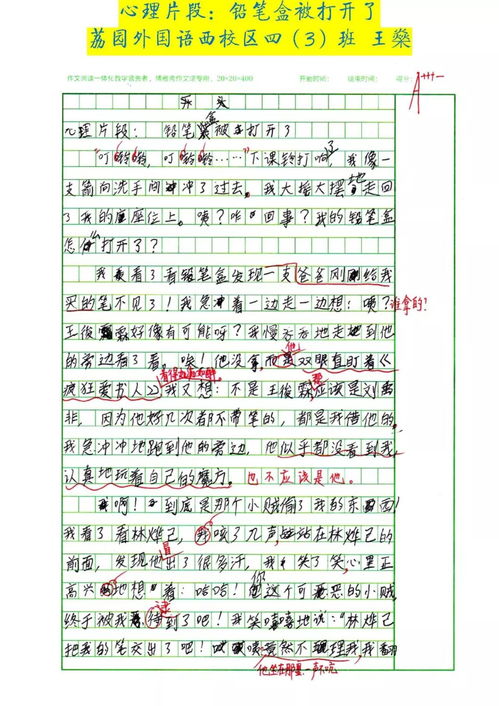 心理片段:铅笔盒被打开了
荔园外国语西校区四(3)班 王燊
20×20=400 开始时间: 结束时间: 得分:
心理片段:铅笔盒被打开了
“叮铃铃,叮铃铃……”下课铃打响了,我像一
支箭向洗手间冲了过去。我大摇大摆地走回
了我的座位上。咦?咋回事?我的铅笔盒
怎么打开了?
我看了看铅笔盒发现一支爸爸刚刚给我
买的笔不见了!我急冲着一边走一边想:咦?谁拿的?
王俊霖好像有可能呀?我慢吞吞地走到他
的旁边看了看。唉!他没拿他双眼直盯着《
疯狂爱书人》我又想:不是王俊霖那应该是刘
非,因为他好几次都不带笔的,都是我借他的。
我急冲冲地跑到他的旁边,他似乎都没看到我,
认真地玩着自己的魔方。也不应该是他。
我啊!到底是那个小贼偷了我的东西!
我看了看林烨己,我咳了几声站在林烨己的
前面,发现他冒出了很多汗,我笑了笑心里正
高兴地想着:哈哈!你这个可恶的小贼
终于被我逮到了吧!我笑嘻嘻地说:“林烨己
把我的笔交出了吧!竟然不理我我翻
他坐在那里一声不吭